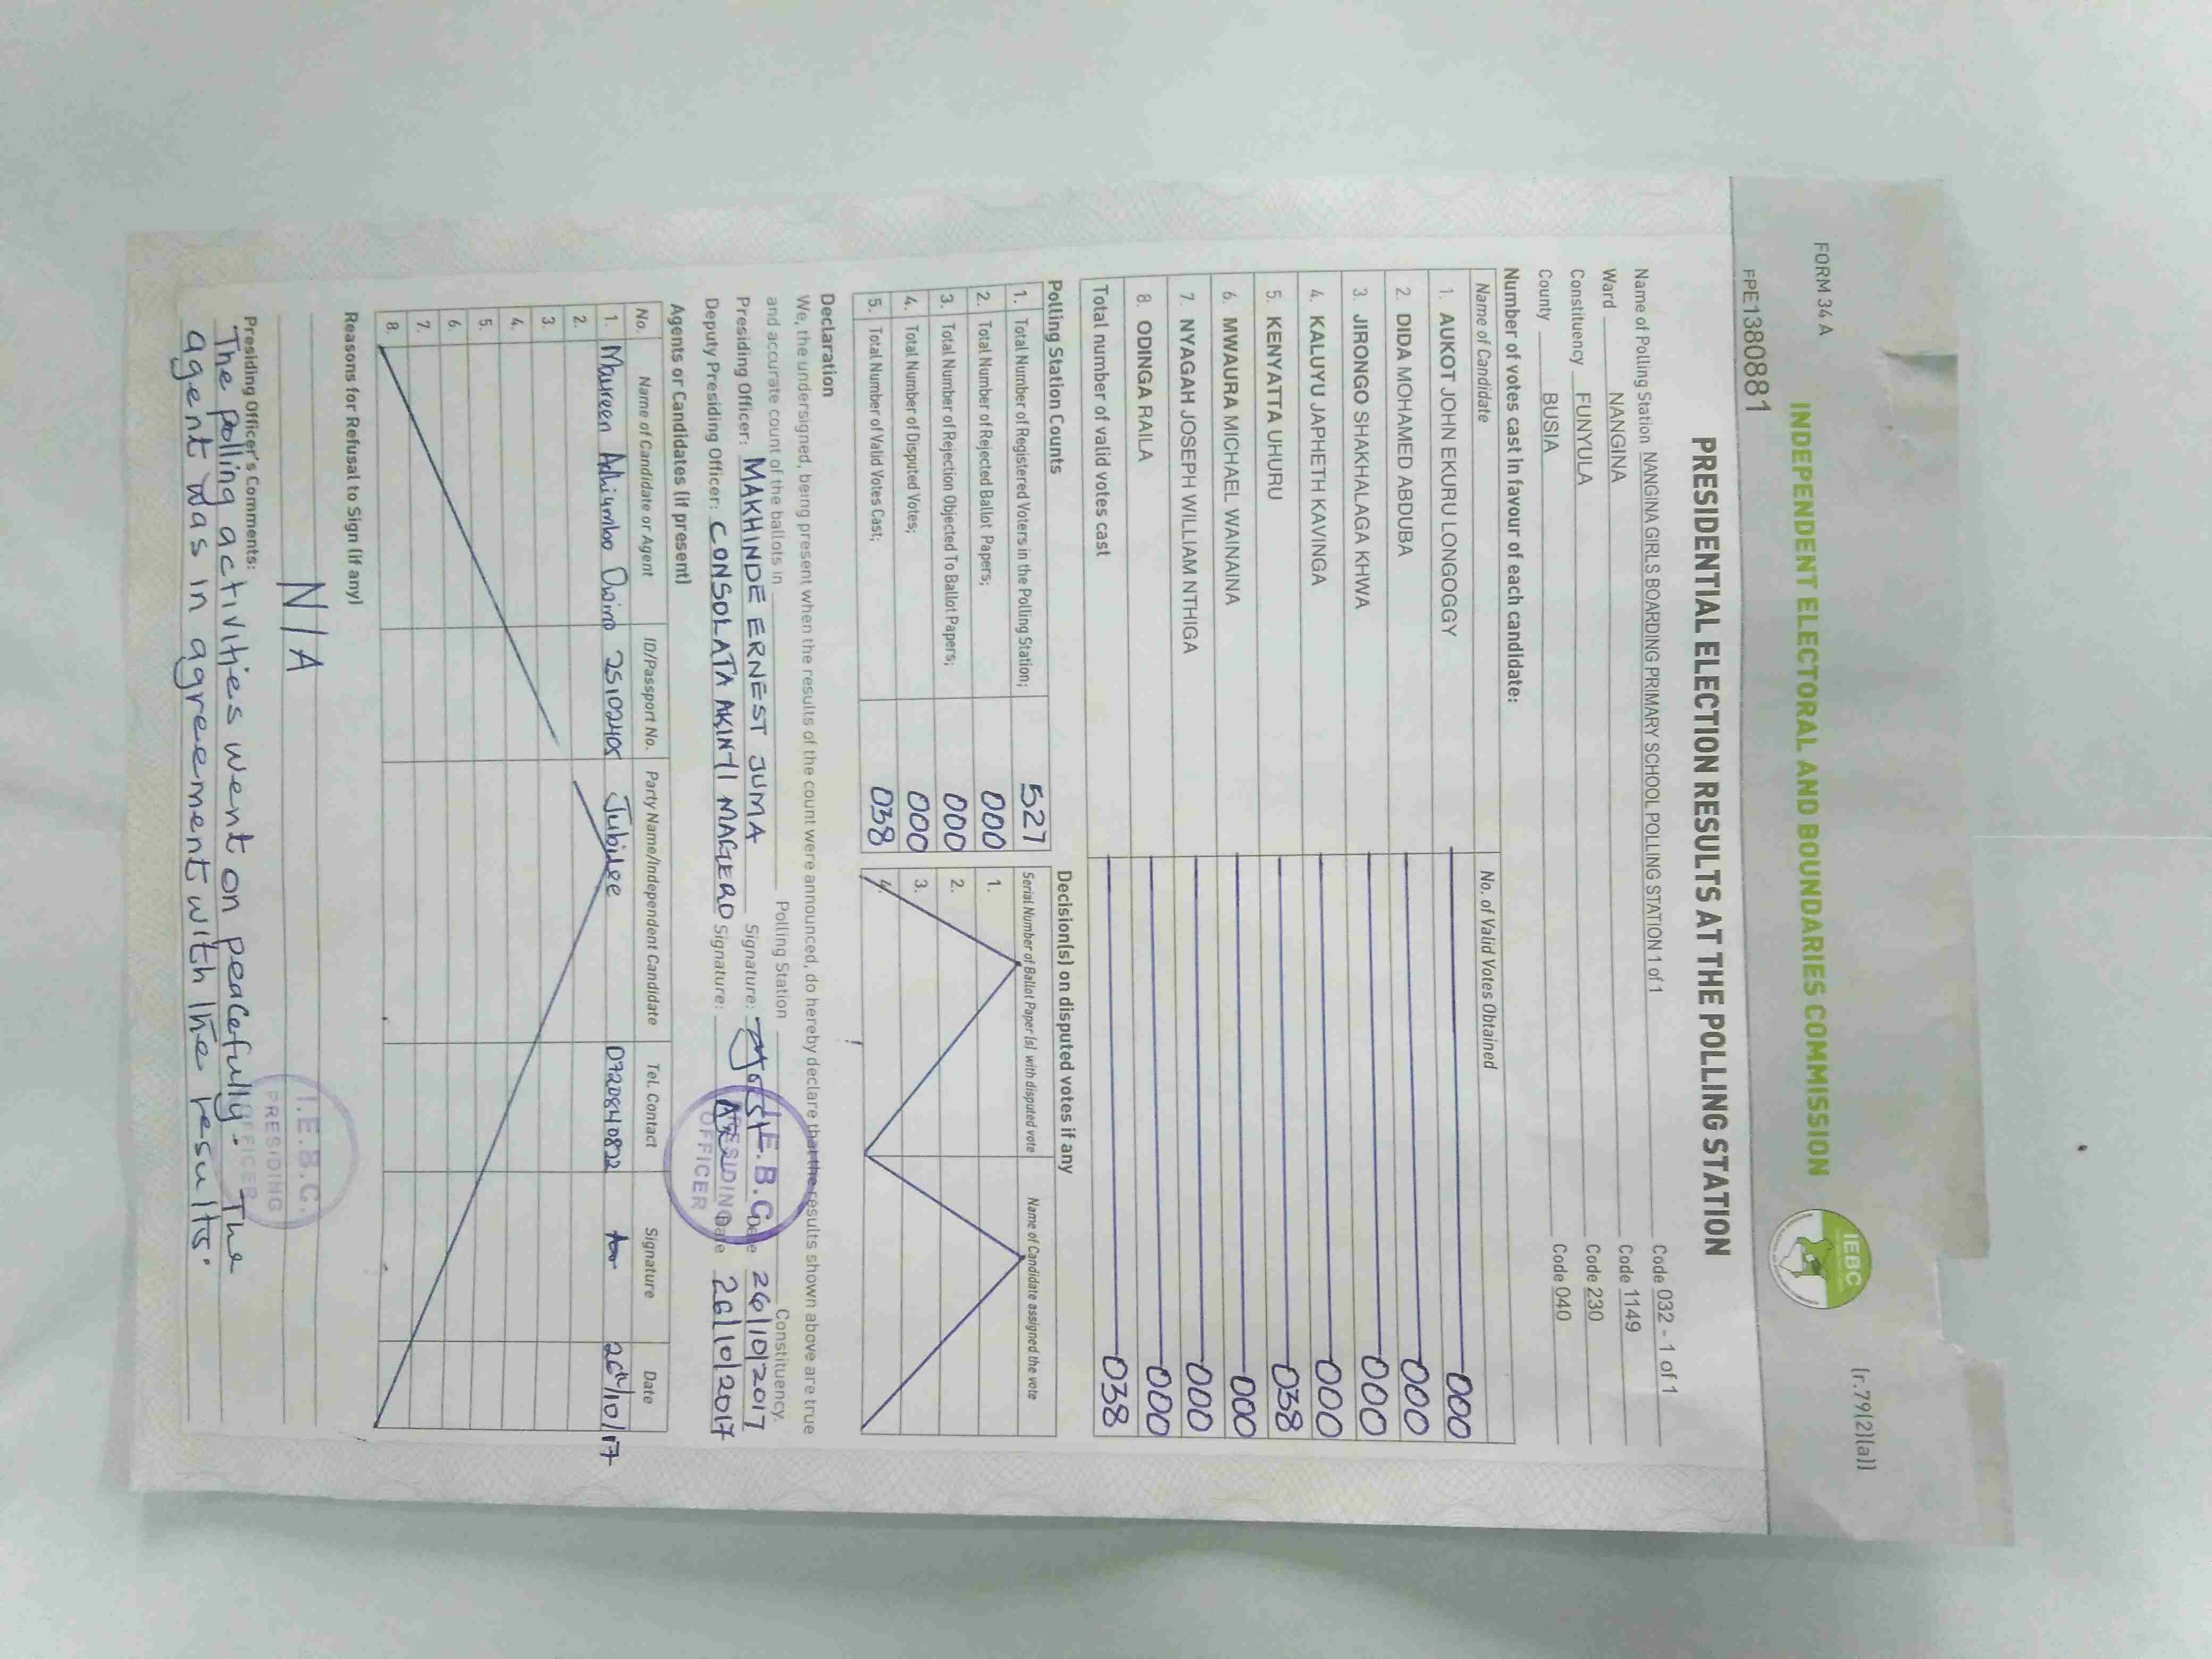 FORM 34 A
(r.79(2)(a))
INDEPENDENT ELECTORAL AND BOUNDARIES COMMISSION
IEBC
FPE1380881
PRESIDENTIAL ELECTION RESULTS AT THE POLLING STATION
Name of Polling Station NANGINA GIRLS BOARDING PRIMARY SCHOOL POLLING STATION 1 of 1 Code 032 - 1 of 1
Ward NANGINA Code 1149
Constituency FUNYULA Code 230
County BUSIA Code 040
Number of votes cast in favour of each candidate:
Name of Candidate No. of Valid Votes Obtained
1. AUKOT JOHN EKURU LONGOGGY 000
2. DIDA MOHAMED ABDUBA 000
3. JIRONGO SHAKHALAGA KHWA 000
4. KALUYU JAPHETH KAVINGA 000
5. KENYATTA UHURU 038
6. MWAURA MICHAEL WAINAINA 000
7. NYAGAH JOSEPH WILLIAM NTHIGA 000
8. ODINGA RAILA 000
Total number of valid votes cast 038
Polling Station Counts
1. Total Number of Registered Voters in the Polling Station; 527
2. Total Number of Rejected Ballot Papers; 000
3. Total Number of Rejection Objected To Ballot Papers; 000
4. Total Number of Disputed Votes; 000
5. Total Number of Valid Votes Cast; 038
Decision(s) on disputed votes if any
Serial Number of Ballot Paper (s) with disputed vote Name of Candidate assigned the vote
1.
2.
3.
4.
Declaration
We, the undersigned, being present when the results of the count were announced, do hereby declare that the results shown above are true
and accurate count of the ballots in Polling Station Constituency.
Presiding Officer: MAKHINDE ERNEST JUMA Signature: Date 26/10/2017
Deputy Presiding Officer: CONSOLATA AKINYI MAGERO Signature: Date 26/10/2017
I.E.B.C.
PRESIDING
OFFICER
Agents or Candidates (if present)
No. Name of Candidate or Agent ID/Passport No. Party Name/Independent Candidate Tel. Contact Signature Date
1. Maureen Adhiambo 25102405 Jubilee 0720840822 26th/10/17
2.
3.
4.
5.
6.
7.
8.
Reasons for Refusal to Sign (if any)
N/A
I.E.B.C.
PRESIDING
OFFICER
Presiding Officer's Comments:
The polling activities went on peacefully. The
agent was in agreement with the results.